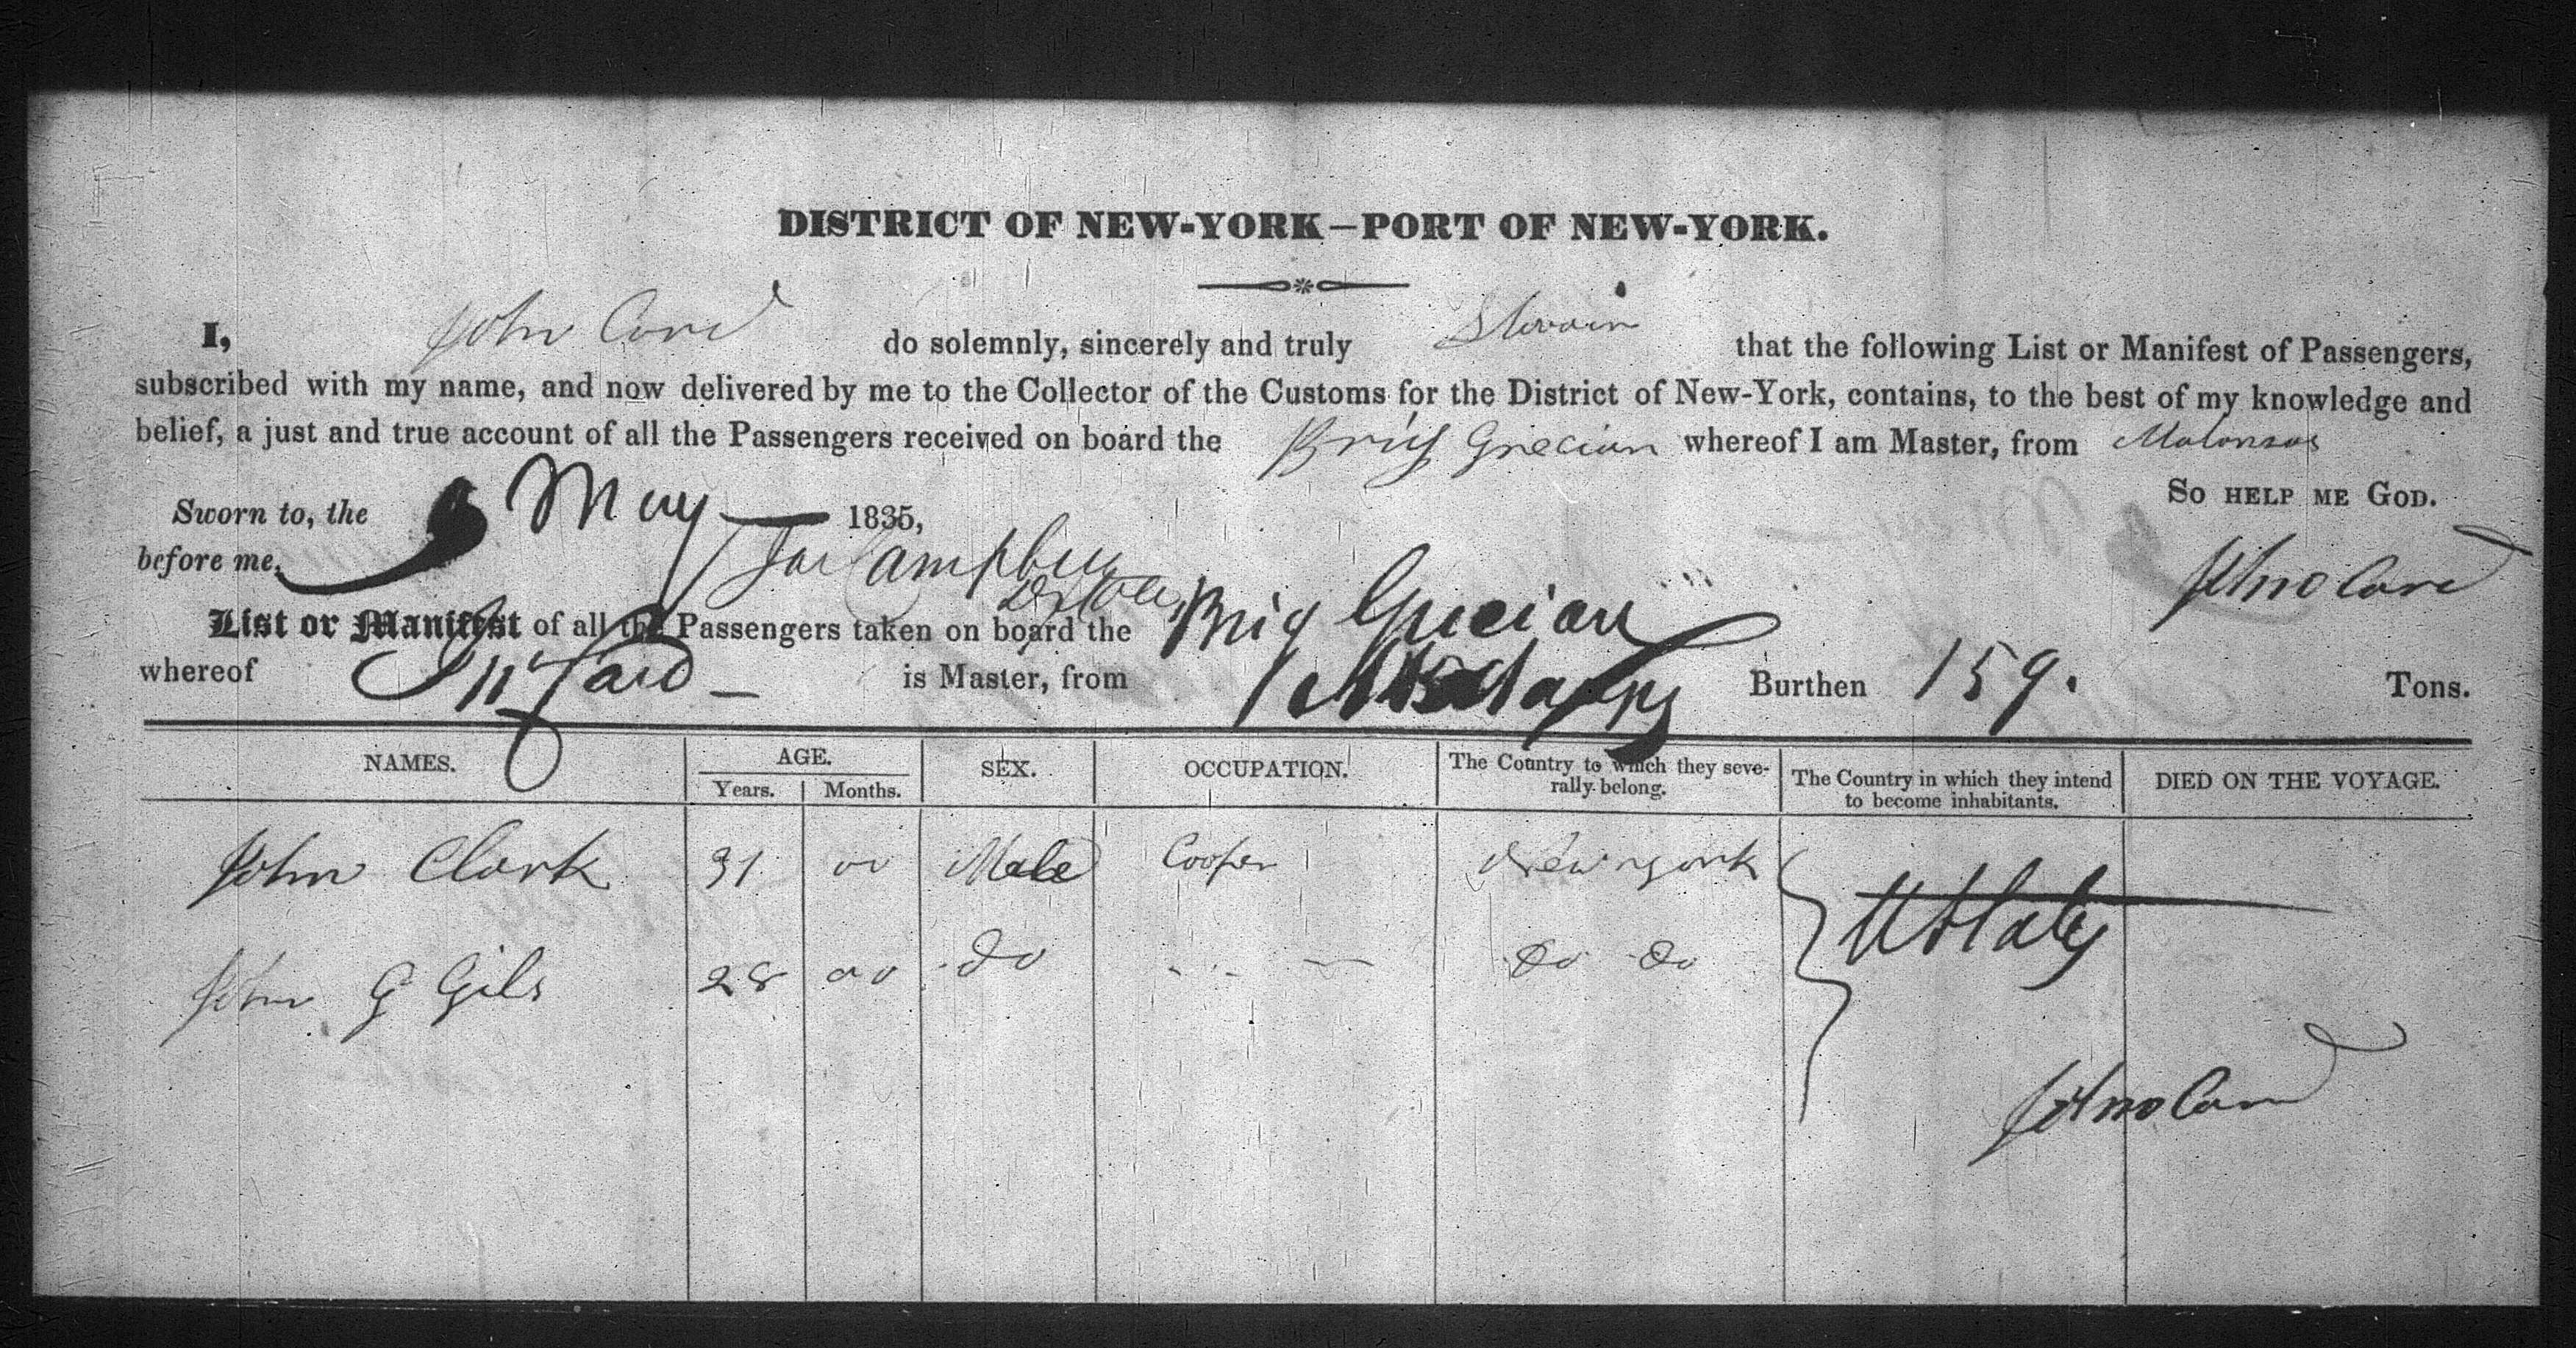 DISTRICT OF NEW-YORK—PORT OF NEW-YORK.
I, John Card do solemnly, sincerely and truly that the following List or Manifest of Passengers,
subscribed with my name, and now delivered by me to the Collector of the Customs for the District of New-York, contains, to the best of my knowledge and
belief, a just and true account of all the Passengers received on board the Brig Grecian whereof I am Master, from Matansas
So help me God.
Sworn to, the May 1835,
before me, Campbell
John Card
List or Manifest of all the Passengers taken on board the Brig Grecian
whereof Card is Master, from Burthen 159. Tons.
NAMES. AGE. SEX. OCCUPATION. The Country to which they seve- The Country in which they intend DIED ON THE VOYAGE.
Years. Months. rally belong. to become inhabitants.
John Clark 31 oo Male Cooper New york
U States
John G Gils 28 oo do do do
John Card